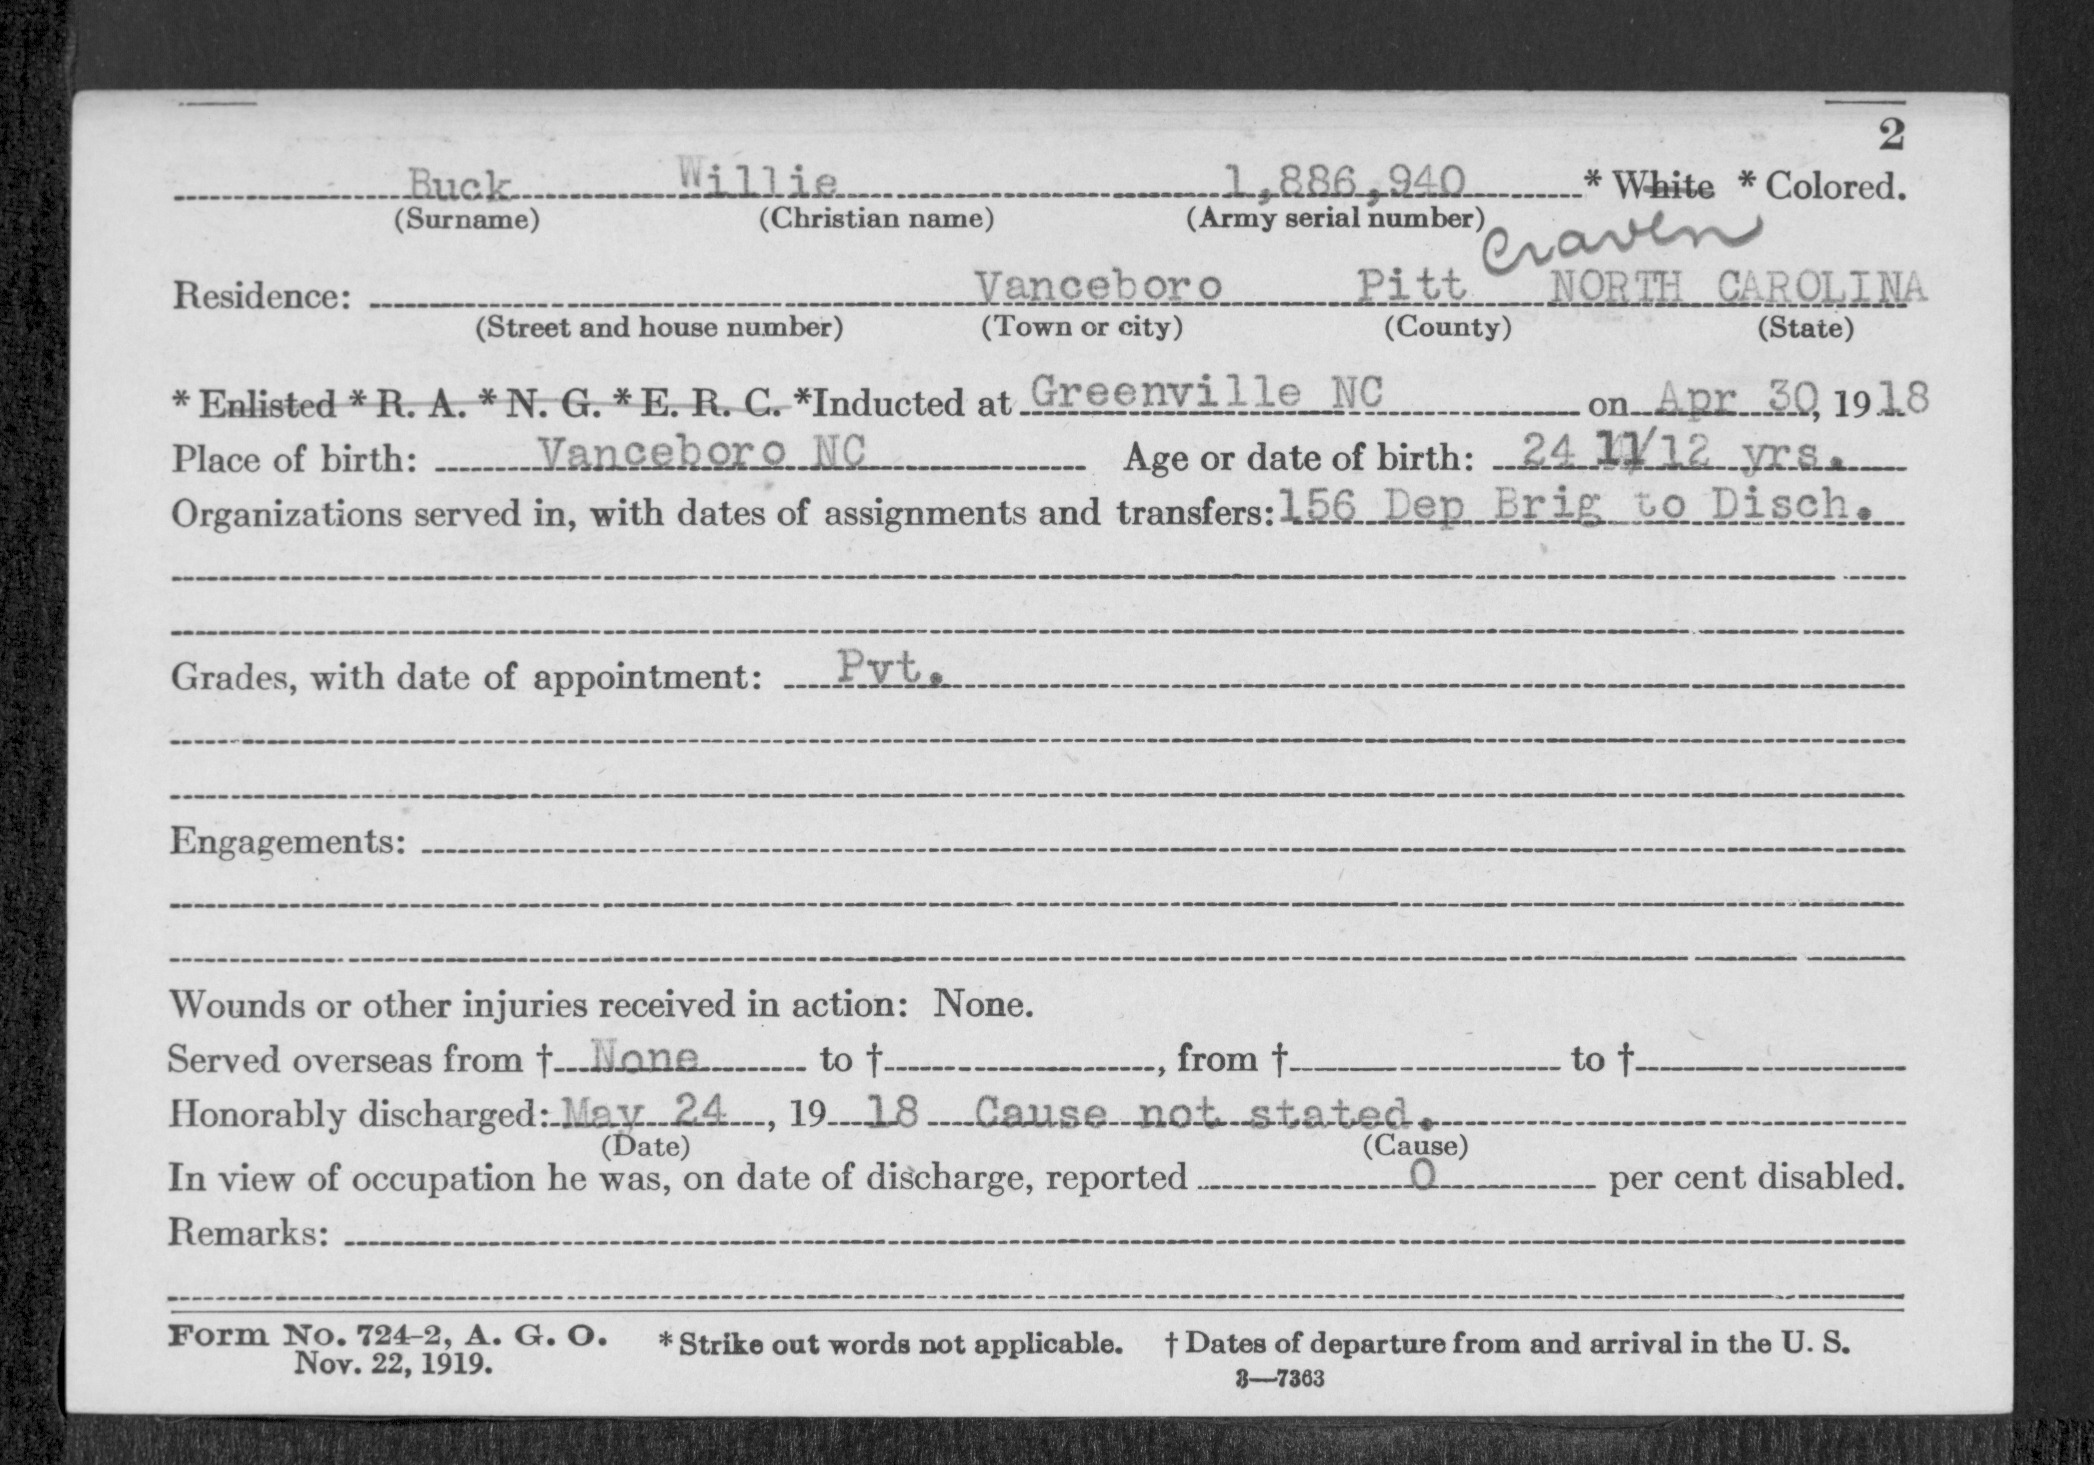 2
Buck Willie 1,886,940 * White * Colored.
(Surname) (Christian name) (Army serial number)
Craven
Residence: Vanceboro Pitt NORTH CAROLINA
(Street and house number) (Town or city) (County) (State)
* Enlisted * R. A. * N. G. * E. R. C. *Inducted at Greenville NC on Apr 30, 1918
Place of birth: Vanceboro NC Age or date of birth: 24 11/12 yrs.
Organizations served in, with dates of assignments and transfers: 156 Dep Brig to Disch.
Grades, with date of appointment: Pvt.
Engagements:
Wounds or other injuries received in action: None.
Served overseas from † None to †, from † to †
Honorably discharged: May 24, 19 18 Cause not stated.
(Date) (Cause)
In view of occupation he was, on date of discharge, reported 0 per cent disabled.
Remarks:
Form No. 724-2, A. G. O. * Strike out words not applicable. † Dates of departure from and arrival in the U. S.
Nov. 22, 1919. 3—7363